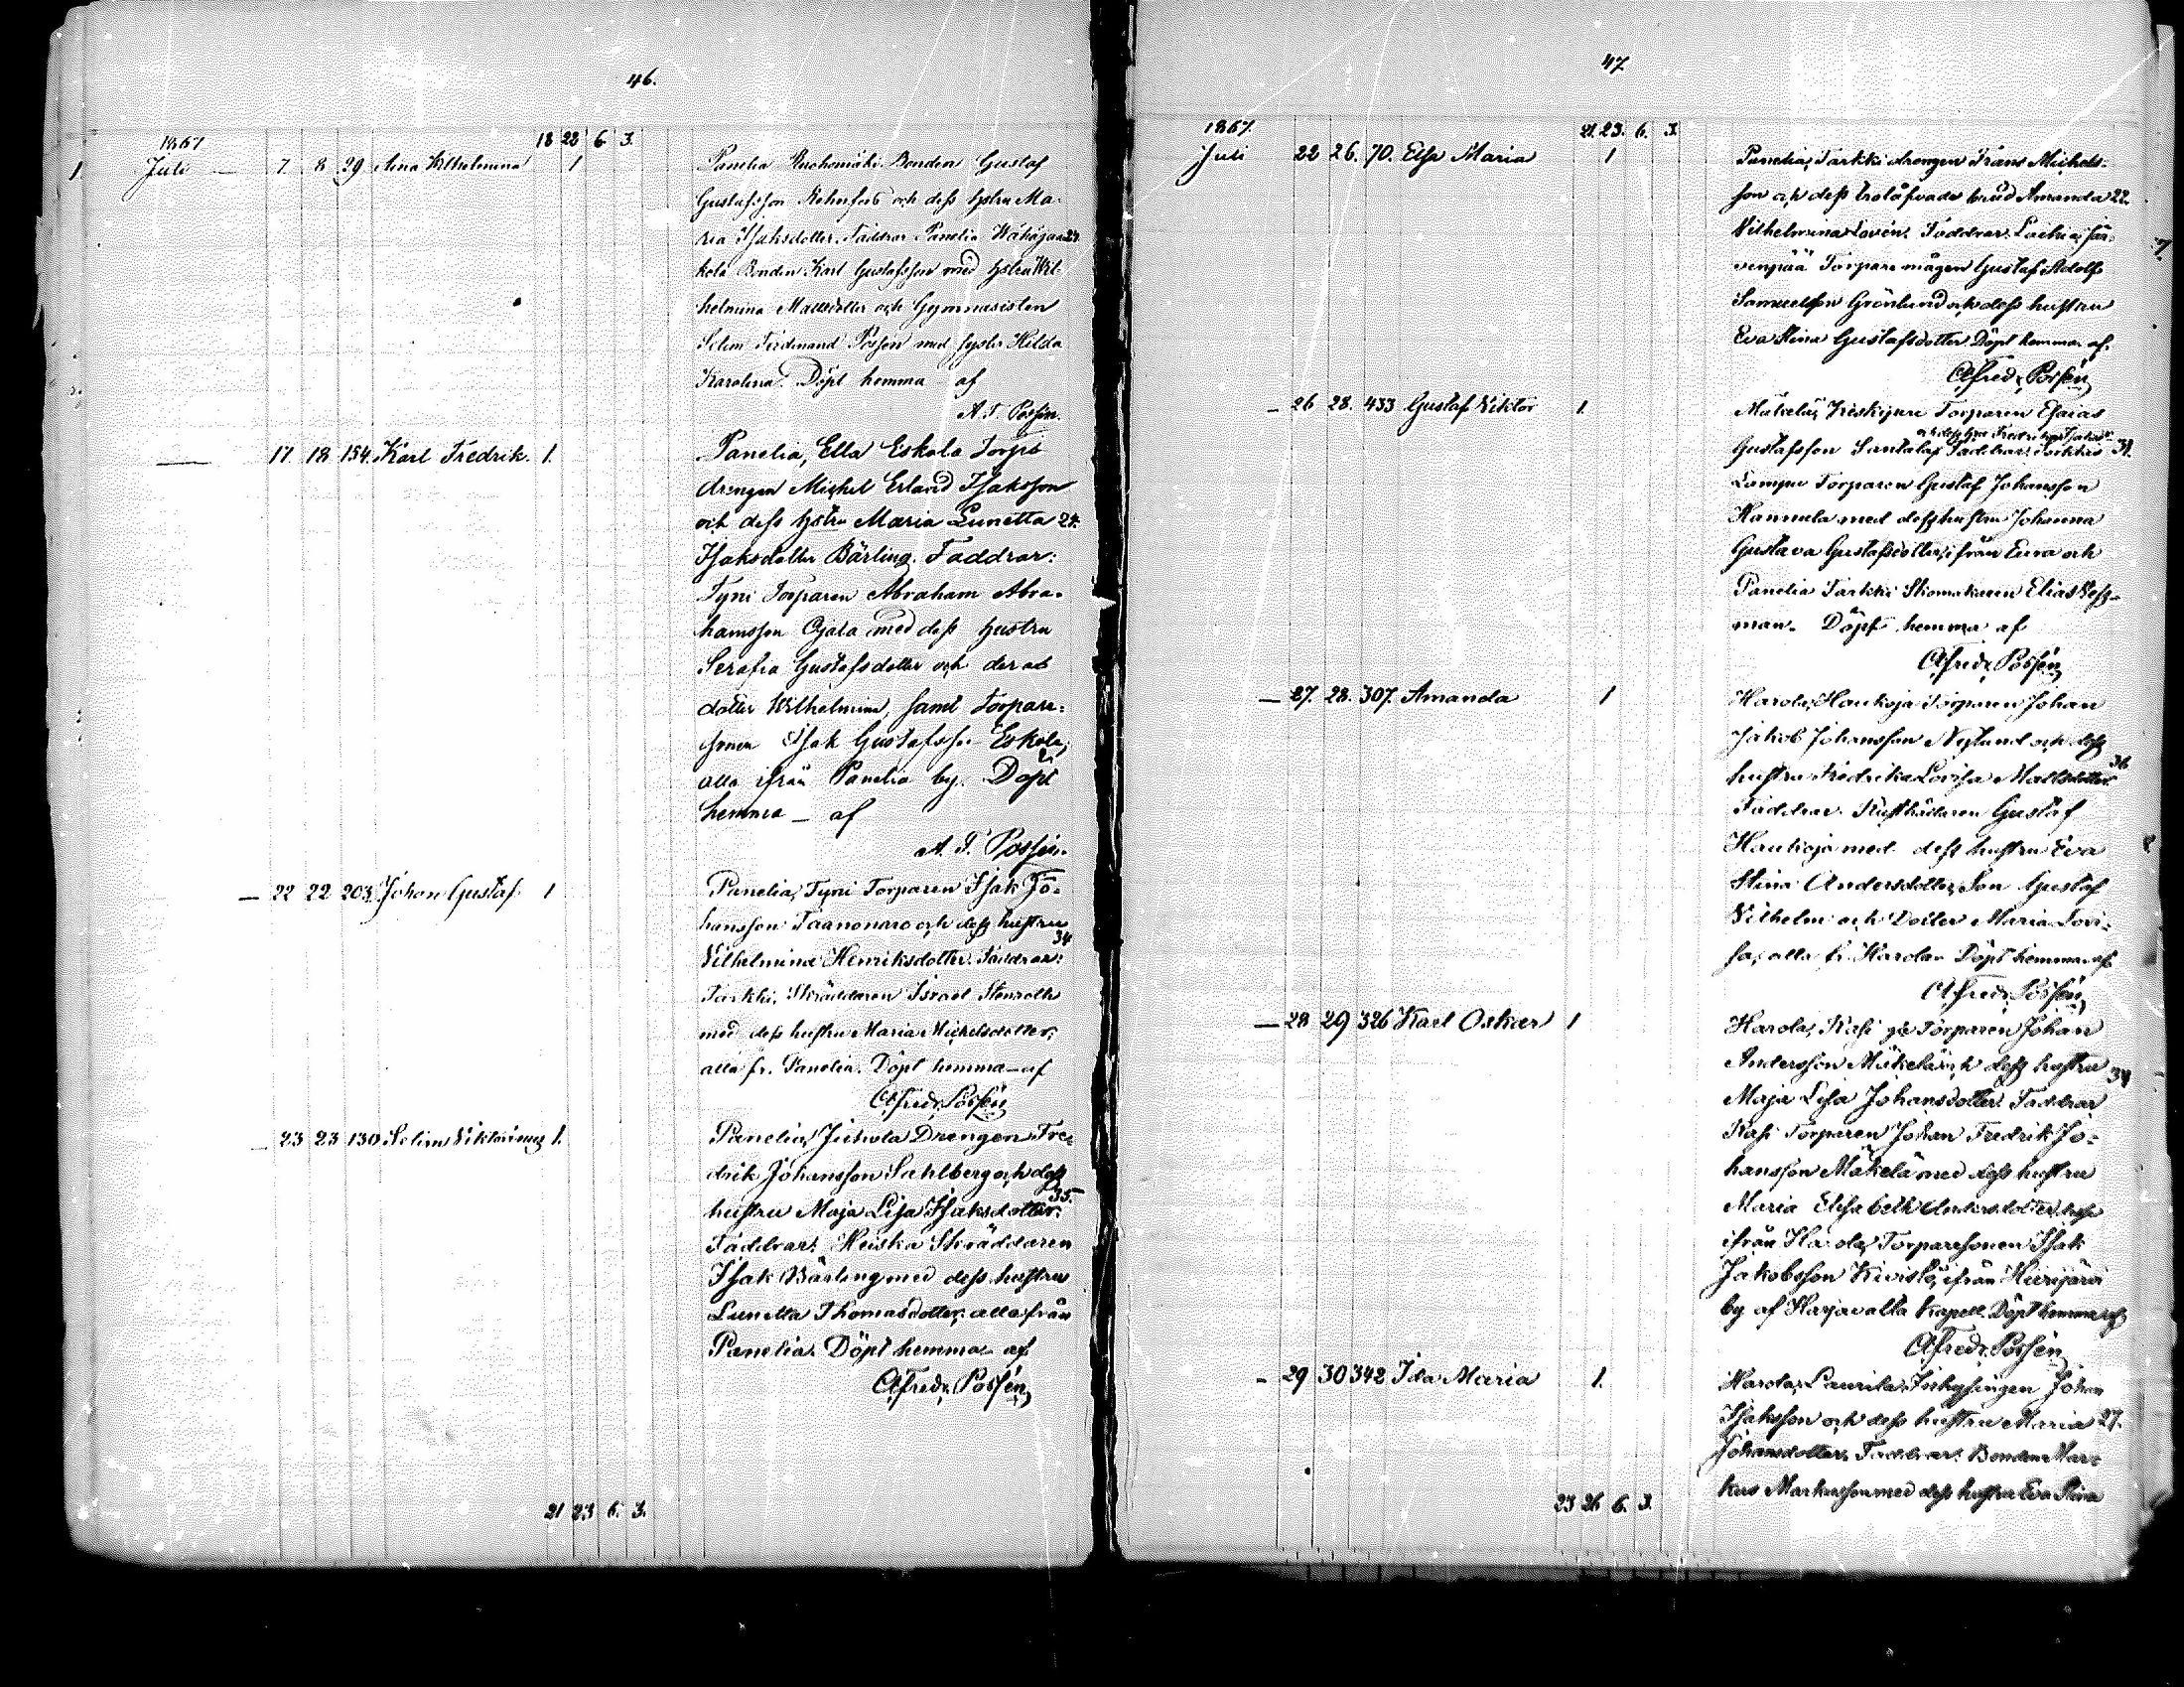 46.
1867
18 22 6. 3.
1 Juli — 7. 8 29 Aina Wilhelmina 1 Panelia Ruohomäki Bonden Gustaf
Gustafsson och dess hstru Ma-
ria Isaksdotter. Faddrar Panelia 23.
kola Bonden Karl Gustafsson med hstru Wil-
helmina Mattsdotter och Gymnasisten
Selim Ferdinand Possen med syster Hilda
Karolina. Döpt hemma af
A. F. Possén.
— 17. 18 154. Karl Fredrik. 1. Panelia, Ella Eskola Torps
drengen Michel Erland Isaksson
och dess hstru Maria Lunetta 24.
Isaksdotter Bärling. Faddrar:
Tyni Torparen Abraham Abra-
hamsson Ojala med dess hustru
Serafia Gustafsdotter och deras
dotter Wilhelmina, samt Torpare-
sonen Isak Gustafsson Eskola,
alla ifrån Panelia by. Döpt
hemma — af
A. F. Possén.
— 22 22 203. Johan Gustaf 1 Panelia, Tyni Torparen Isak Jo-
hansson Taanonaro och dess hustru
34
Vilhelmina Henriksdotter. Faddrar:
Tarkki, Skräddaren Israel Stenroth
med dess hustru Maria Michelsdotter,
alla fr. Panelia. Döpt hemma — af
Alfred Possén
— 23 23 130 Selim Viktorinus 1. Panelia, Juhola Drengen Fre-
drik Johansson Sahlberg och dess
35.
hustru Maja Lisa Isaksdotter.
Faddrar: Heiska Skräddaren
Isak Bärling med dess hustru
Lunetta Thomasdotter, alla från
Panelia. Döpt hemma — af
Alfred Possén
21 23 6. 3.
47
1867.
21. 23. 6. 3.
Juli 22 26. 70. Elsa Maria 1 Panelia, Tarkki drengen Frans Michels-
son och dess trolåfvade brud Amanda 22.
Vilhelmina Lovén. Faddrar: Laihia, Jär-
venpää Torpare mågen Gustaf Adolf
Samuelsson Grönlund och dess hustru
Eva Stina Gustafsdotter. Döpt hemma af
Alfred Possén
— 26 28. 433 Gustaf Viktor 1. Mäkelä, Torparen Esaias
och dess hstru Fredrika
Gustafsson Santala. Faddrar: 31.
Torparen Gustaf Johansson
Hannula med dess hustru Johanna
Gustava Gustafsdotter, ifrån Eura och
Panelia Tarkki Skomakaren Elias Vess-
man. Döpt hemma af
Alfred Possén
— 27. 28. 307. Amanda 1 Harola, Haukoja Torparen Johan
Jakob Johansson Nylund och dess
36
hustru Fredrika Lovisa Mattsdotter.
Faddrar: Rusthållaren Gustaf
Haukoja med dess hustru Eva
Stina Andersdotter, Son Gustaf
Vilhelm och Dotter Maria Lovi-
sa, alla fr. Harola. Döpt hemma af
Alfred Possén
— 28 29 326 Karl Oskar 1 Harola, Kasi Torparen Johan
Andersson Mäkelä och dess hustru 34
Maja Lisa Johansdotter. Faddrar
Kasi Torparen Johan Fredrik Jo-
hansson Mäkelä med dess hustru
Maria Elisabeth Andersdotter,
ifrån Harola, Torparesonen Isak
Jakobsson Kivistö, ifrån Hiirijärvi
by af Harjavalta Kapell. Döpt hemma af
Alfred Possén
— 29 30 342 Ida Maria 1. Harola, Laurila, Inhysingen Johan
Isaksson och dess hustru Maria 27.
Johansdotter. Faddrar: Bonden Mar-
kus Markusson med dess hustru Eva Stina
23 26 6. 3.